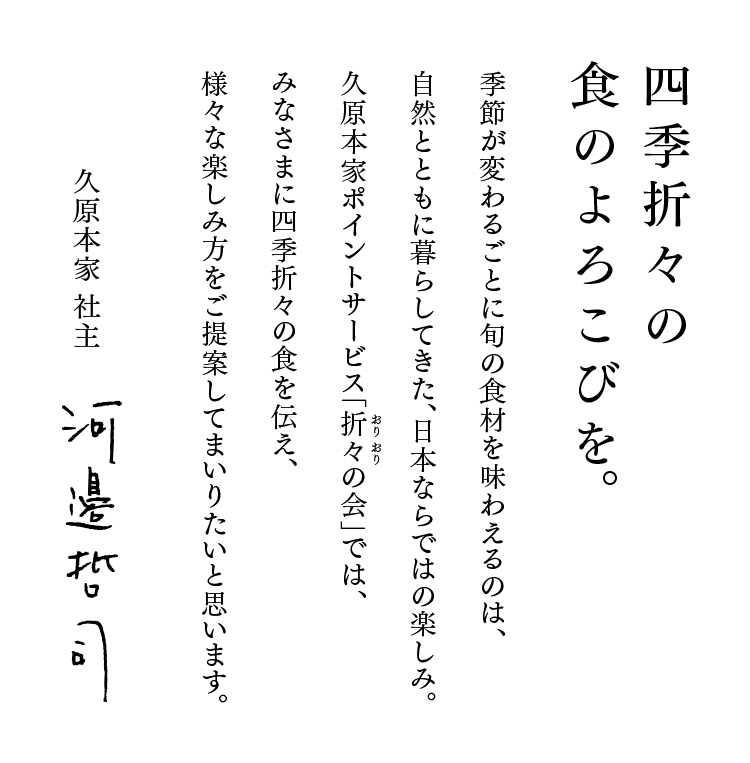 四季折々の
食のよろこびを。
季節が変わるごとに旬の食材を味わえるのは、
自然とともに暮らしてきた、日本ならではの楽しみ。
久原本家ポイントサービス「折々の会」では、
おり おり
みなさまに四季折々の食を伝え、
様々な楽しみ方をご提案してまいりたいと思います。
久原本家 社主
河邉哲司